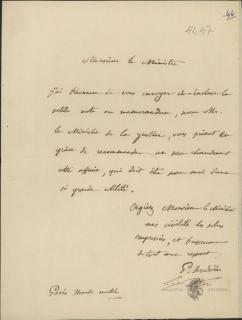 44
41,47
Monsieur le Ministre
J'ai l'honneur de vous envoyer ci-inclus la
petite note ou memorandum, pour Mr.
le Ministre de la justice, vous priant en
grâce de recommander un peu chaudement
cette affaire, qui doit être pour moi d'une
si grande utilité.
Agréez Monsieur le Ministre
mes civilités les plus
empressées, et l'assurance
de tout mon respect
Paris Mardi matin